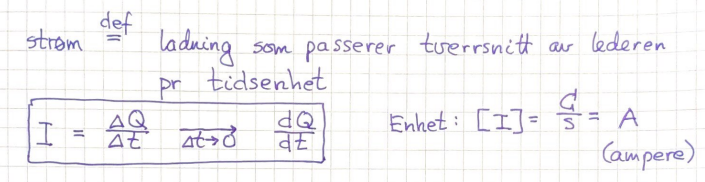 strøm def= ladning som passerer tverrsnitt av lederen
pr tidsenhet
I = ΔQ/Δt →Δt→0 dQ/dt Enhet: [I] = C/s = A
(ampere)